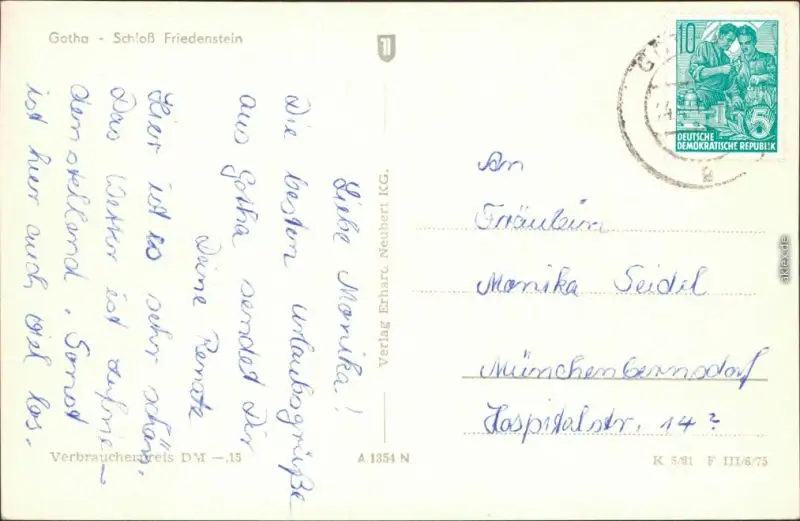 Gotha - Schloß Friedenstein
Liebe Monika!
Die besten Urlaubsgrüße
aus Gotha sendet Dir
Deine Renate
Hier ist es sehr schön.
Das Wetter ist zufrie-
denstellend. Sonst
ist hier auch viel los.
Verbraucherpreis DM -,15
A 1354 N
Verlag Erhart Neubert KG.
10
5
DEUTSCHE
DEMOKRATISCHE REPUBLIK
An
Fräulein
Monika Seidel
Münchenbernsdorf
Hospitalstr. 14?
K 5/61 F III/6/75
akpool.de